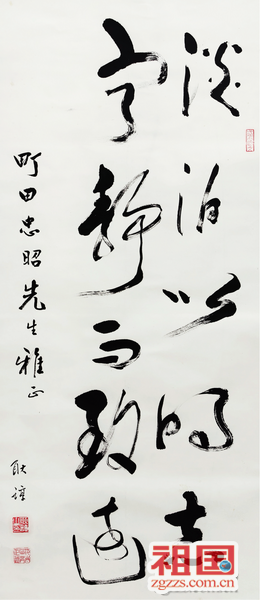 淡泊以明志
宁静而致远
町田忠昭先生雅正
耿莹
祖国
zgzzs.com.cn